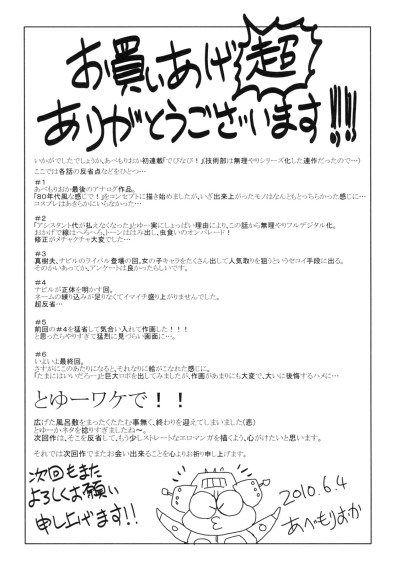 お買いあげ超
ありがとうございます!!!
いかがでしたでしょうか、あべもりおか初連載「でびなび！」(技術部は無理やりシリーズ化した連作だったので…)
ここでは各話の反省点などをひとつ…
＃１
あべもりおか最後のアナログ作品。
「80年代風な感じで！」をコンセプトに描き始めましたが、いざ出来上がったモノはなんともとっちらかった感じに…
コスプレはあきらかにいらなかった…
＃２
「アシスタント代が払えなくなった」とゆー実にしょっぱい理由により、この話から無理やりフルデジタル化。
おかげで線はへろへろ、トーンははみ出し、虫食いのオンパレード！
修正がメチャクチャ大変でした…
＃３
真樹夫、ナビルのライバル登場の回。女の子キャラをたくさん出して人気取りを狙うというセコイ手段に出る。
そのかいあってか、アンケートは良かったらしいです。
＃４
ナビルが正体を明かす回。
ネームの練り込みが足りなくてイマイチ盛り上がりませんでした。
超反省…
＃５
前回の＃４を猛省して気合い入れて作画した！！！
と思ったらやりすぎて猛烈に見づらい画面に…。
＃６
いよいよ最終回。
さすがにこのあたりになると、それなりに絵がこなれた感じに。
「たまにはいいだろー」と巨大ロボを出してみましたが、作画があまりにも大変で、大いに後悔するハメに…
とゆーワケで！！
広げた風呂敷をまったくたたむ事無く、終わりを迎えてしまいました(恋)
とゆーかネタを捻りすぎましたね〜。
次回作は、そこを反省して、もう少しストレートなエロマンガを描くよう、心がけたいと思います。
それでは次回作でまたお会い出来ることを心よりお祈り申し上げます。
次回もまた
よろしくお願い
申し上げます!!
2010.6.4
あべもりおか